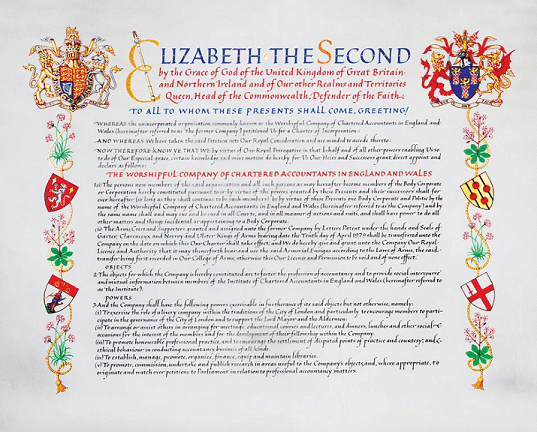 ELIZABETH THE SECOND
by the Grace of God of the United Kingdom of Great Britain
and Northern Ireland and of Our other Realms and Territories
Queen, Head of the Commonwealth, Defender of the Faith:
TO ALL TO WHOM THESE PRESENTS SHALL COME, GREETING!
WHEREAS the unincorporated organisation commonly known as the Worshipful Company of Chartered Accountants in England and
Wales (hereinafter referred to as 'the former Company') petitioned Us for a Charter of Incorporation:
AND WHEREAS We have taken the said Petition into Our Royal Consideration and are minded to accede thereto:
NOW THEREFORE KNOW YE THAT WE by virtue of Our Royal Prerogative in that behalf and of all other powers enabling Us so
to do of Our Especial grace, certain knowledge and mere motion do hereby for Us Our Heirs and Successors grant, direct appoint and
declare as follows:
THE WORSHIPFUL COMPANY OF CHARTERED ACCOUNTANTS IN ENGLAND AND WALES
1(i) The persons now members of the said organisation and all such persons as may hereafter become members of the Body Corporate
or Corporation hereby constituted pursuant to or by virtue of the powers granted by these Presents and their successors shall for
ever hereafter (so long as they shall continue to be such members) be by virtue of these Presents one Body Corporate and Politic by the
name of the Worshipful Company of Chartered Accountants in England and Wales (hereinafter referred to as 'the Company') and by
the same name shall and may sue and be sued in all Courts, and in all manner of actions and suits, and shall have power to do all
other matters and things incidental or appertaining to a Body Corporate.
(ii) The Arms, Crest and Supporters granted and assigned unto the former Company by Letters Patent under the hands and Seals of
Garter, Clarenceux, and Norroy and Ulster Kings of Arms bearing date the Tenth day of April 1979 shall be transferred unto the
Company on the date on which this Our Charter shall take effect; and We do hereby give and grant unto the Company Our Royal
Licence and Authority that it may thenceforth bear and use the said Armorial Ensigns according to the Laws of Arms, the said
transfer being first recorded in Our College of Arms, otherwise this Our Licence and Permission to be void and of none effect.
OBJECTS
2 The objects for which the Company is hereby constituted are to foster the profession of accountancy and to provide social intercourse
and mutual information between members of the Institute of Chartered Accountants in England and Wales (hereinafter referred to
as 'the Institute').
POWERS
3 And the Company shall have the following powers exercisable in furtherance of its said objects but not otherwise, namely:
(i) To exercise the role of a livery company within the traditions of the City of London and particularly to encourage members to part-
icipate in the governance of the City of London and to support the Lord Mayor and the Aldermen.
(ii) To arrange or assist others in arranging for meetings, educational courses and lectures, and dinners, lunches and other social
occasions for the interest of the members and for the development of their fellowship within the Company.
(iii) To promote honourable professional practice, and to encourage the settlement of disputed points of practice and courtesy; and
ethical behaviour in conducting accountancy business of all kinds.
(iv) To establish, manage, promote, organize, finance, equip and maintain libraries.
(v) To promote, commission, undertake and publish research in areas useful to the Company's objects; and, where appropriate, to
originate and watch over petitions to Parliament in relation to professional accountancy matters.